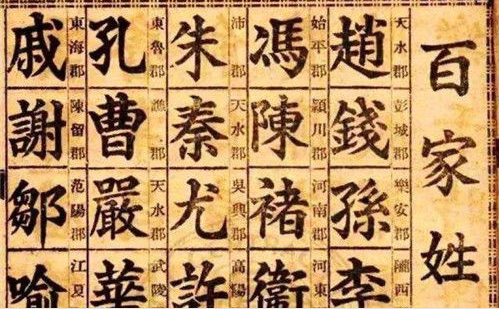 百家姓
天水郡 彭城郡 樂安郡 隴西
趙 錢 孫 李
始平郡 潁川郡 河南郡 河東
馮 陳 褚 衞
沛郡 天水郡 吳興郡 高陽
朱 秦 尤 許
東魯郡 譙郡 天水郡 武陵
孔 曹 嚴 華
東海郡 陳留郡 范陽郡 江夏
戚 謝 鄒 喻